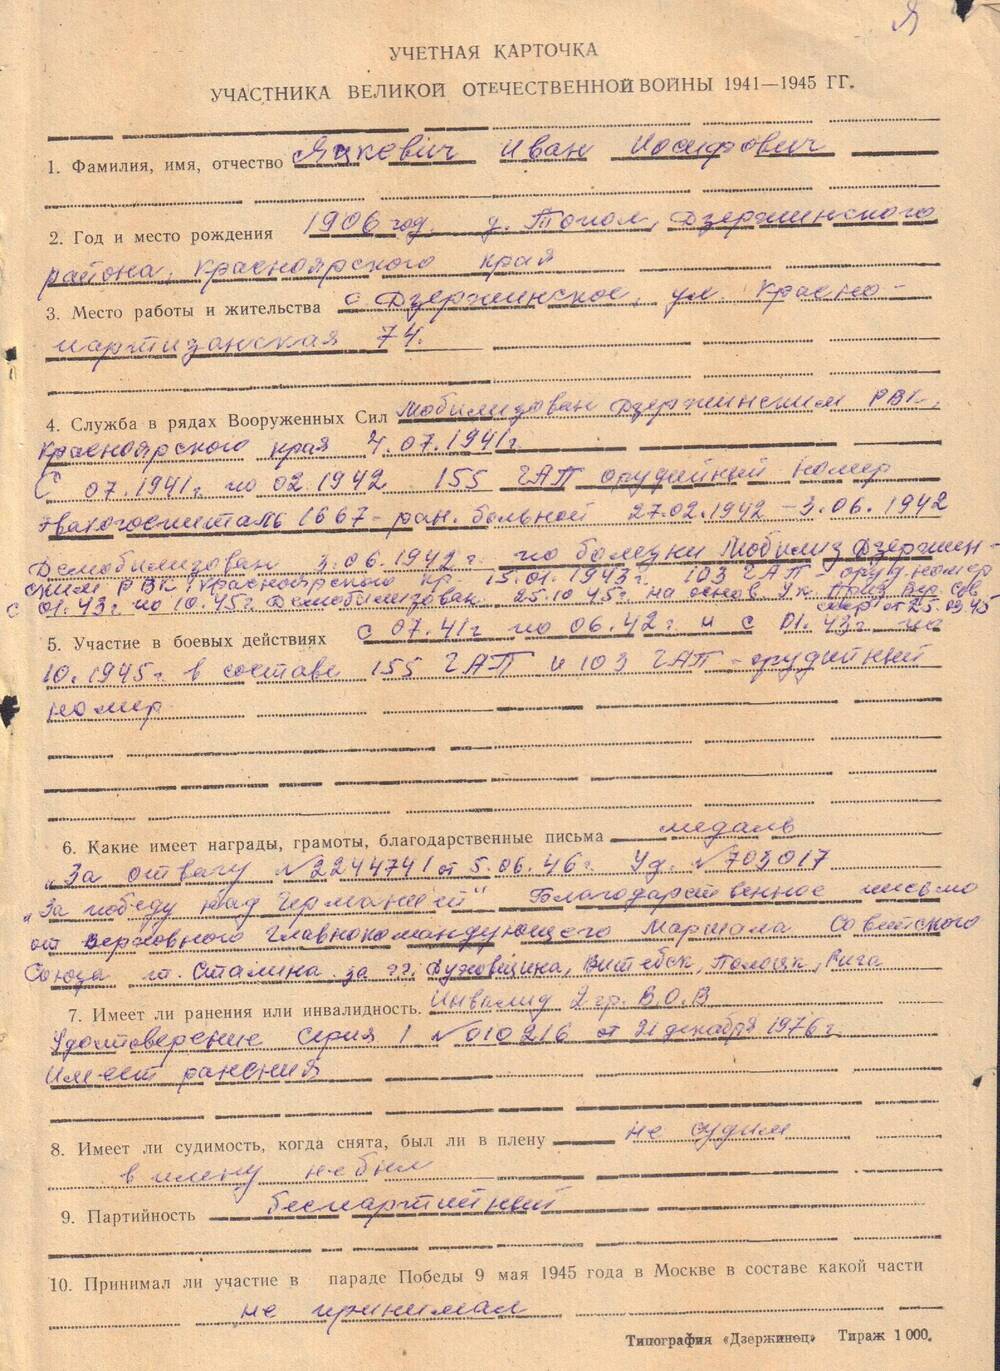 Я
УЧЕТНАЯ КАРТОЧКА
УЧАСТНИКА ВЕЛИКОЙ ОТЕЧЕСТВЕННОЙ ВОЙНЫ 1941—1945 ГГ.
1. Фамилия, имя, отчество Яцкевич Иван Иосифович
2. Год и место рождения 1906 год. д. Топол, Дзержинского
района, Красноярского края
3. Место работы и жительства с. Дзержинское, ул. Красно-
партизанская 74.
4. Служба в рядах Вооруженных Сил Мобилизован Дзержинским РВК,
Красноярского края 4.07.1941г.
С 07.1941г. по 02.1942 155 ГАП орудийный номер
Эвакогоспиталь 1667 - ран. больной 27.02.1942 - 3.06.1942
Демобилизован 3.06.1942г. по болезни Мобилиз Дзержин-
ским РВК Красноярского кр. 15.01.1943г. 103 ГАП - оруд. номер
с 01.43г по 10.45г Демобилизован 25.10 45г. на основ Ук. През. Вер. Сов
СССР от 25.09.45
5. Участие в боевых действиях с 07.41г по 06.42г и с 01.43г по
10.1945г. в составе 155 ГАП и 103 ГАП - орудийный
номер
6. Какие имеет награды, грамоты, благодарственные письма медаль
„За отвагу №2244741 от 5.06.46г. Уд. №703017
„За победу над Германией" Благодарственное письмо
от Верховного Главнокомандующего Маршала Советского
Союза т. Сталина за г.г. Духовщина, Витебск, Полоцк, Рига
7. Имеет ли ранения или инвалидность. Инвалид 2 гр. В.О.В
Удостоверение Серия 1 №010216 от 21 декабря 1976г.
Имеет ранения
8. Имеет ли судимость, когда снята, был ли в плену не судим
в плену не был
9. Партийность беспартийный
10. Принимал ли участие в параде Победы 9 мая 1945 года в Москве в составе какой части
не принимал
Типография «Дзержинец» Тираж 1 000.